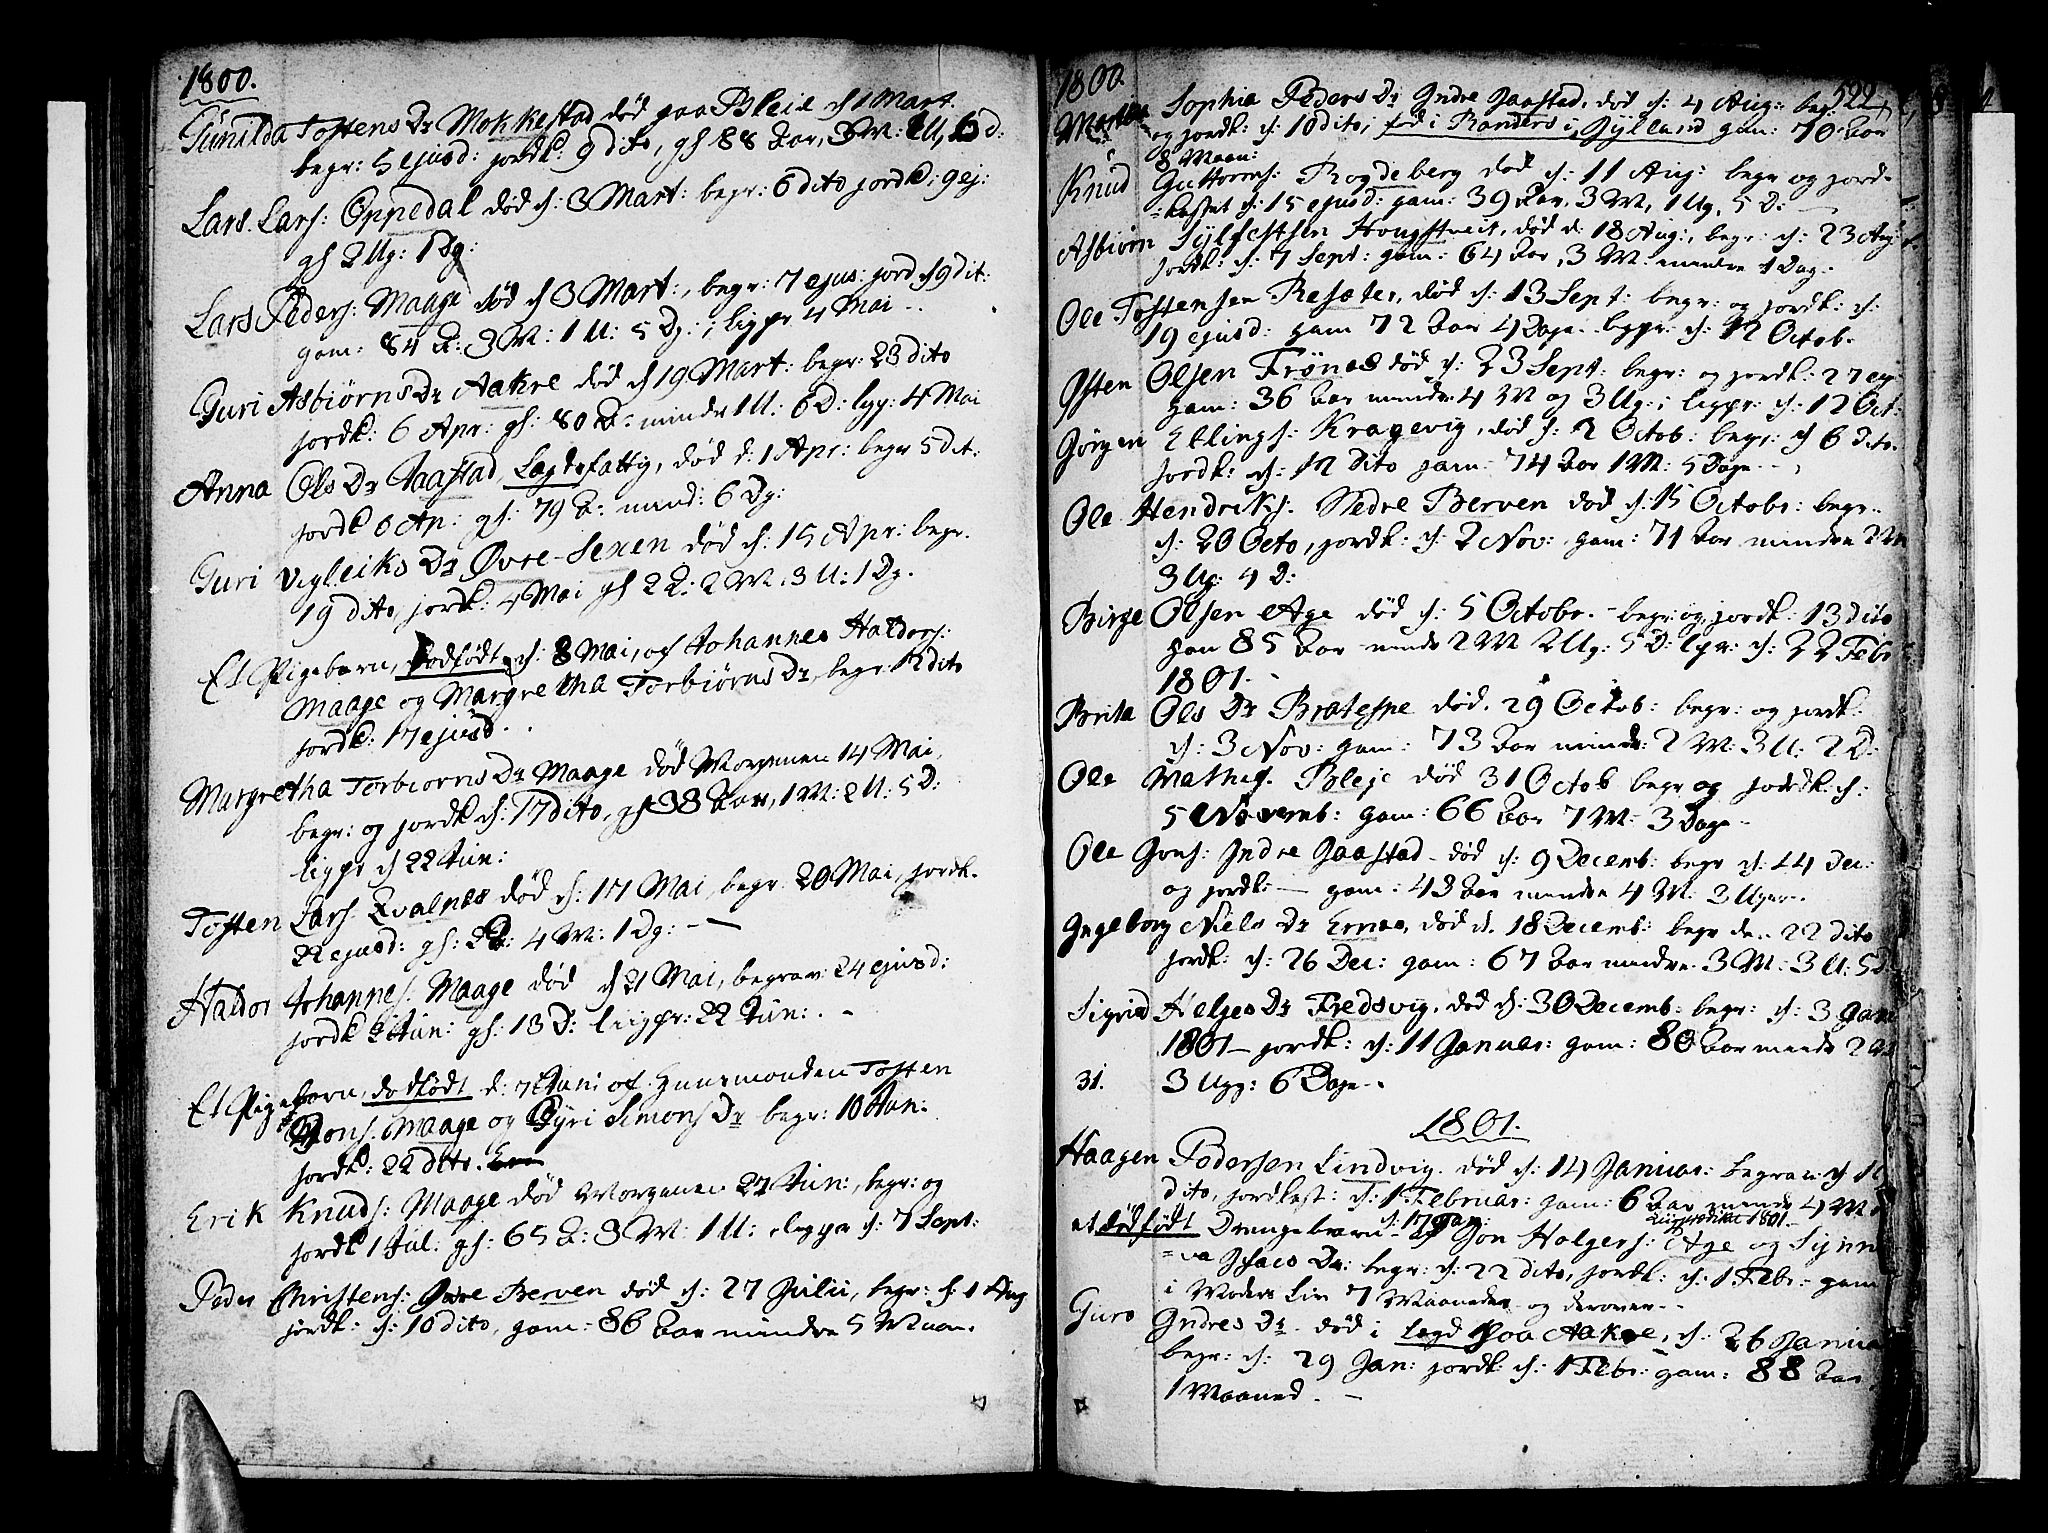 1800.
Gunilda Tostens Dr Mokkestad død paa Bleie d 1 Mart.
begr: 5 ejusd: jordk: 9 dito, gl 88 Aar, 3 M: 1 U, 6 d:
Lars Lars: Oppedal død d: 3 Mart: begr: 6 dito jordk: 9 ej:
gl 2 Ug: 1 Dg:
Lars Peders: Maage død d 3 Mart:, begr: 7 ejus: jord d 9 dit:
gam: 84 A: 3 M: 1 U: 5 Dg:, ligpr 4 Mai -.
Guri Asbiørns Dr Aakre død d 19 Mart: begr: 23 dito
jordk: 6 Apr: gl: 80 A: mindr 1 U: 6 D: lgp: 4 Mai
Anna Ols Dr Jaastad Lægdsfattig, død d: 1 Apr: begr 5 dit:
jordk 6 Ap: gl: 79 A: mind: 6 Dg:
Guri Vigleiks Dr Øvre-Sexen død d: 15 Apr: begr.
19 dito, jordk: 4 Mai gl 2 A: 2 M: 3 U: 1 Dg.
Et Pigebarn, dødfødt d: 8 Mai, af Johannes Haldors:
Maage og Margretha Torbiørns Dr, begr: 12 dito
jordk: 17 ejusd. .
Margretha Torbiorns Dr Maage død Morgenen 14 Mai,
begr: og jordk d: 17 dito, gl 38 Aar, 1 M: 2 U: 5 D:
ligpr d 22 Jun:
Tosten Lars: Qvalnes død d: 17 Mai, begr: 20 Mai, jordk.
22 ejusd: gl: 2 A: 4 M: 1 Dg: -
Haldor Johannes: Maage død d 21 Mai, begrav: 24 ejusd:
jordk 2 Jun: gl: 13 D: ligpr: 22 Jun: . -
Et Pigebarn, dødfødt d: 7 Juni af Huusmanden Tosten
Mons: Maage og Gyri Simons Dr begr: 10 Jun:
jordk: 22 dito.
Erik Knuds: Maage død Morgenen 27 Jun:, begr: og
jordk 1 Jul. gl: 65 A: 3 M: 1 U:, ligpr d: 7 Sept:
Peder Christens: Berven død d: 27 Julii, begr: d: 1 Aug
jordk: d: 10 dito, gam: 86 Aar mindre 5 Maan.
1800. 522
Sophia Peders Dr Indre Jaastad, død d: 4 Aug: begr:
og jordk: d: 10 dito, fød i Randers i Jylland gam: 70 Aar
8 Maan:
Knud Guttorms: Rogdeberg død d: 11 Aug: begr og jord-
=kastet d: 15 ejusd: gam: 39 Aar, 3 M, 1 Ug, 5 D: -
Asbiørn Sylfestsen Hougstveit, død d: 18 Aug:, begr: d: 23 Aug
jordk: d: 7 Sept: gam: 64 Aar, 3 M: mindre 1 Dag.
Ole Tostensen Resæter, død d: 13 Sept: begr: og jordk: d:
19 ejusd: gam 72 Aar 4 Dage. ligpr: d: 12 Octob.
Østen Olsen Frønes død d: 23 Sept: begr: og jordk: 27 ej
gam: 36 Aar mindre 4 M og 3 Ug: ligpr: d: 12 Oct:
Jørgen Ellings: Kragevig, død d: 2 Octob: begr: d 6 dito.
jordk: d: 12 dito gam: 74 Aar 1 M: 5 Dage -.
Ole Hendriks: Nedre Berven død d: 15 Octobr: begr.
d: 20 Octo, jordk: d: 2 Nov: gam: 71 Aar mindre 2 M
3 Ug: 4 D:
Birge Olsen Age død d: 5 Octobr. - begr: og jordk: 13 dito
gam 85 Aar mindr 2 M 2 Ug: 5 D: lpr: d: 22 Feb
1801. -
Brita Ols Dr Bratespe død. 29 Octob: begr: og jordk:
d: 3 Nov: gam: 73 Aar mindr: 2 M: 3 U: 2 D:
Ole Mathis: Bleje død 31 Octob begr og jordk: d:
5 Novemb: gam: 66 Aar 7 M: 3 Dage -
Ole Jons: Indre Jaastad - død d: 9 Decemb: begr d: 14 Dec:
og jordk: - gam: 43 Aar mindre 4 M: 3 Uger -.
Ingeborg Niels Dr Ernes, død d. 18 Decemb: begr den 22 dito
jordk: d: 26 Dec: gam: 67 Aar mindre 3 M: 3 U: 5 D
Sigrid Helges Dr Fredsvig, død d: 30 Decemb: begr: d: 3 Jan
1801 - jordk: d: 11 Januar: gam: 80 Aar mindr 2 M
31. 3 Ugg: 6 Dage -.
1801.
Haagen Pedersen Lindvig. død d: 14 Januar: begrav: d 1
dito, jordkast: d: 1 Februar: gam: 6 Aar mindre 4 M
et dødfødt Drengebarn d: 17 Jan: af Jon Holgers: Age og Synn
1801
=va Isacs Dr: begr: d: 22 dito, jordk: d: 1 Febr: - gam
i Moders Liv 7 Maaneder og derover -.
Guro Endres Dr. død i Lægd paa Aakre, d: 26 Janua
begr: d: 29 Jan: jordk: d: 1 Febr: gam: 88 Aar
1 Maaned. -